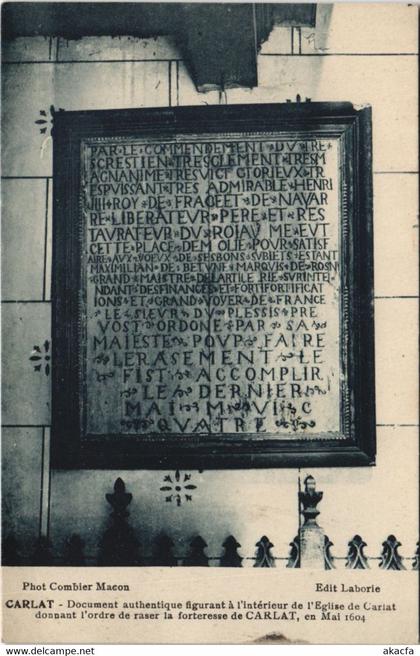 PAR · LE · COMMENDEMENT · DV · TRE
SCRESTIEN · TRESCLEMENT · TRESM
AGNANIME · TRESVICT GLORIEVX · TR
ESPVISSANT · TRES ADMIRABLE · HENRI
IIII · ROY · DE · FRACE · ET · DE · NAVAR
RE · LIBERATEVR · PERE · ET · RES
TAVRATEVR · DV · ROIAV ME · EVT
CETTE · PLACE · DEM OLIE · POVR · SATISF
AIRE · AVX · VOEVX · DE · SES BONS · SVBIETS · ESTANT
MAXIMILIAN · DE · BETVNE · MARQVIS · DE · ROSN
GRAND · MAISTRE · DE L'ARTILE RIE · SVRINTE
NDANT · DES FINANCES · ET · FORTIFORTIFICAT
IONS · ET · GRAND · VOYER · DE · FRANCE
LE · SIEVR · DV · PLESSIS · PRE
VOST · ORDONE · PAR · SA
MAIESTE · POVP · FAIRE
LERASEMENT · LE
FIST · ACCOMPLIR
LE · DERNIER
MAI · M · VI · C
QVATRE
Phot Combier Macon Edit Laborie
CARLAT - Document authentique figurant à l'intérieur de l'Eglise de Carlat
donnant l'ordre de raser la forteresse de CARLAT, en Mai 1604
www.delcampe.net
akacfa